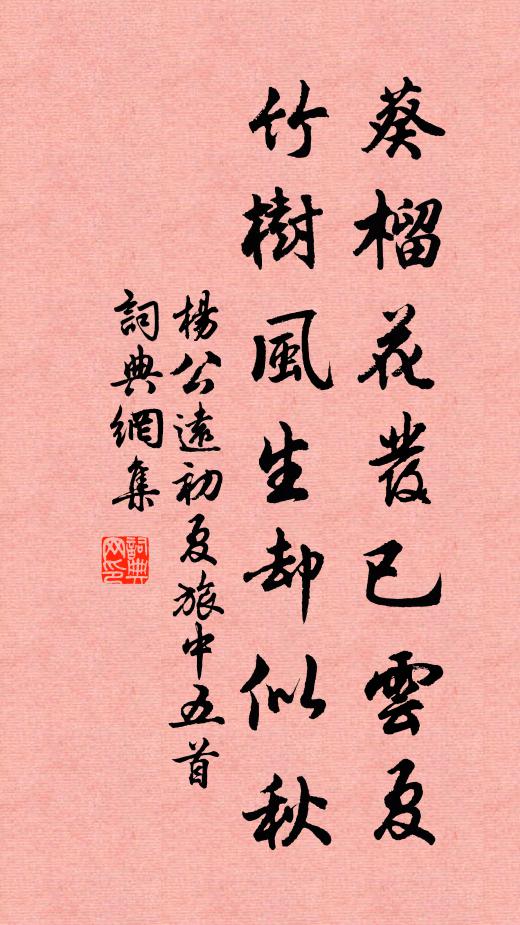 葵榴花發已雲夏
竹樹風生却似秋
楊公遠初夏旅中五首
詞典網集
詞典
网印